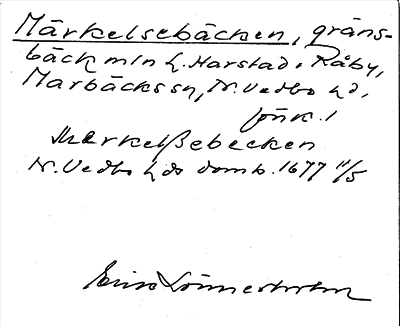 Märkelsebäcken, gräns-
bäck mln L. Harstad o. Råby,
Marbäcks sn, N. Vedbo hd,
Jönk. l
Markelßebecken
N. Vedbo hds domb. 1677 11/5